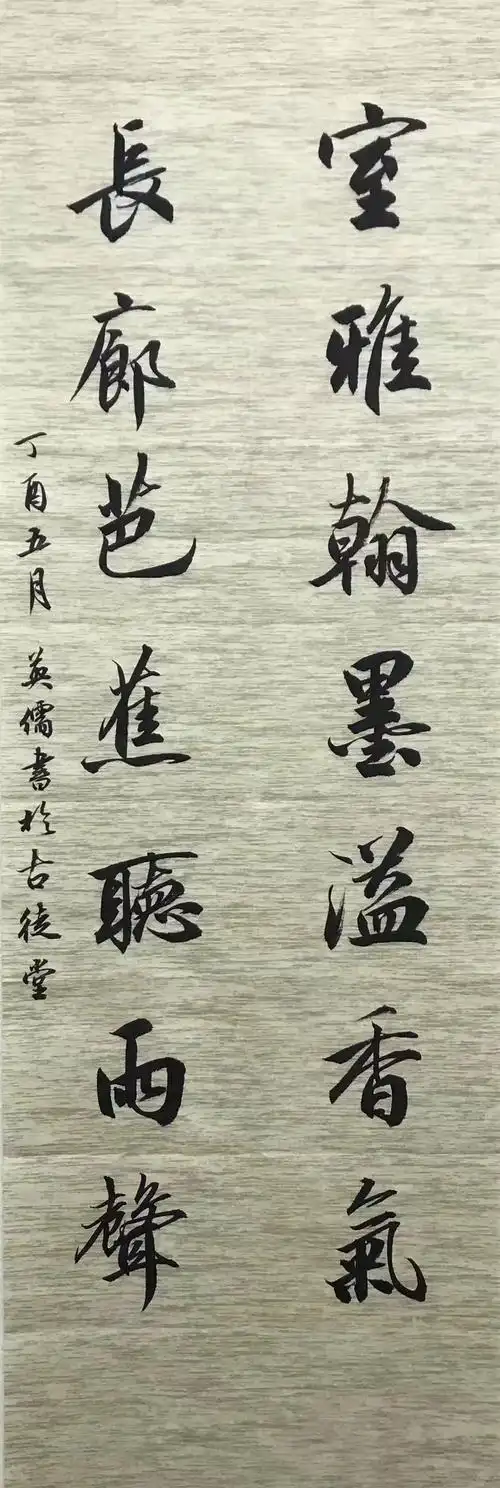 室雅翰墨溢香氣
長廊芭蕉聽雨聲
丁酉五月 英儒書於古徒堂